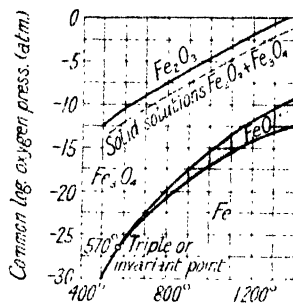 Common log oxygen press. (atm.)
0
-5
-10
-15
-20
-25
-30
Fe₂O₃
Solid solutions Fe₂O₃+Fe₃O₄
Fe₃O₄
FeO
Fe
570°
Triple or
invariant point
400°
800°
1200°